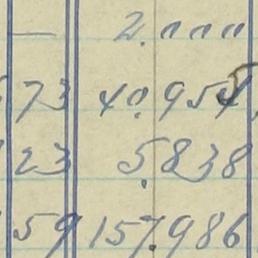 — 2.000
73 40.954
23 5.838
59 157.986